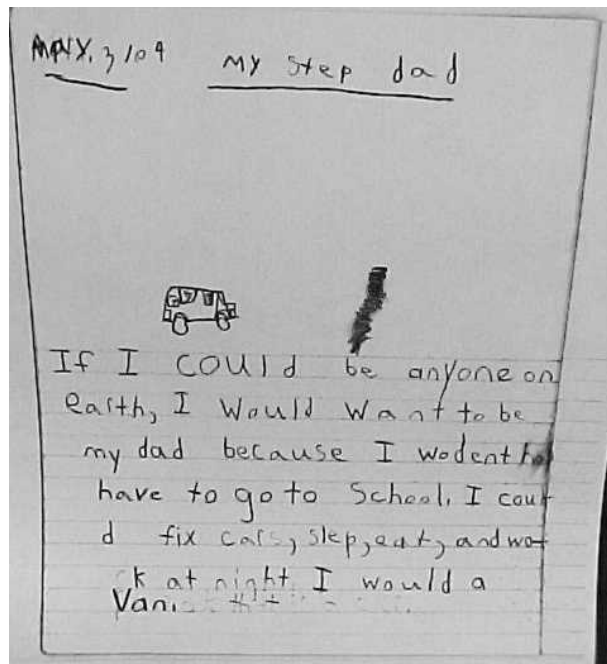 MAY. 3, 04
My Step dad
If I could be anyone on
earth, I would want to be
my dad because I wodent
have to go to School. I coul
d fix cars, slep, eat, and wor
k at night. I would a
Van